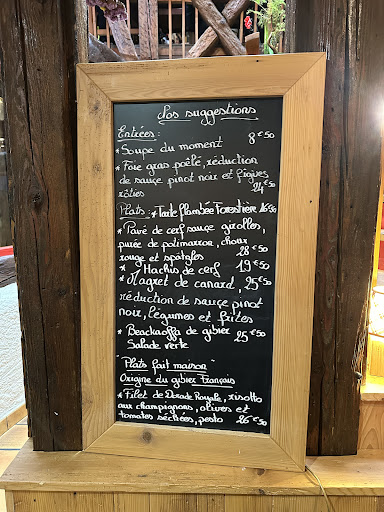 Nos suggestions
Entrées :
* Soupe du moment 8€50
* Foie gras poêlé, réduction
de sauce pinot noir et figues
rôties 24€50
Plats : * Tarte flambée Forestière 16€50
* Pavé de cerf sauce girolles,
purée de potimarron, choux
rouge et spätzles 28€50
* Hachis de cerf 19€50
* Magret de canard, 25€50
réduction de sauce pinot
noir, légumes et frites
* Beackaoffa de gibier 25€50
Salade verte
"Plats fait maison"
Origine du gibier Français
* Filet de Dorade Royale, risotto
aux champignons, olives et
tomates séchées, pesto 26€50